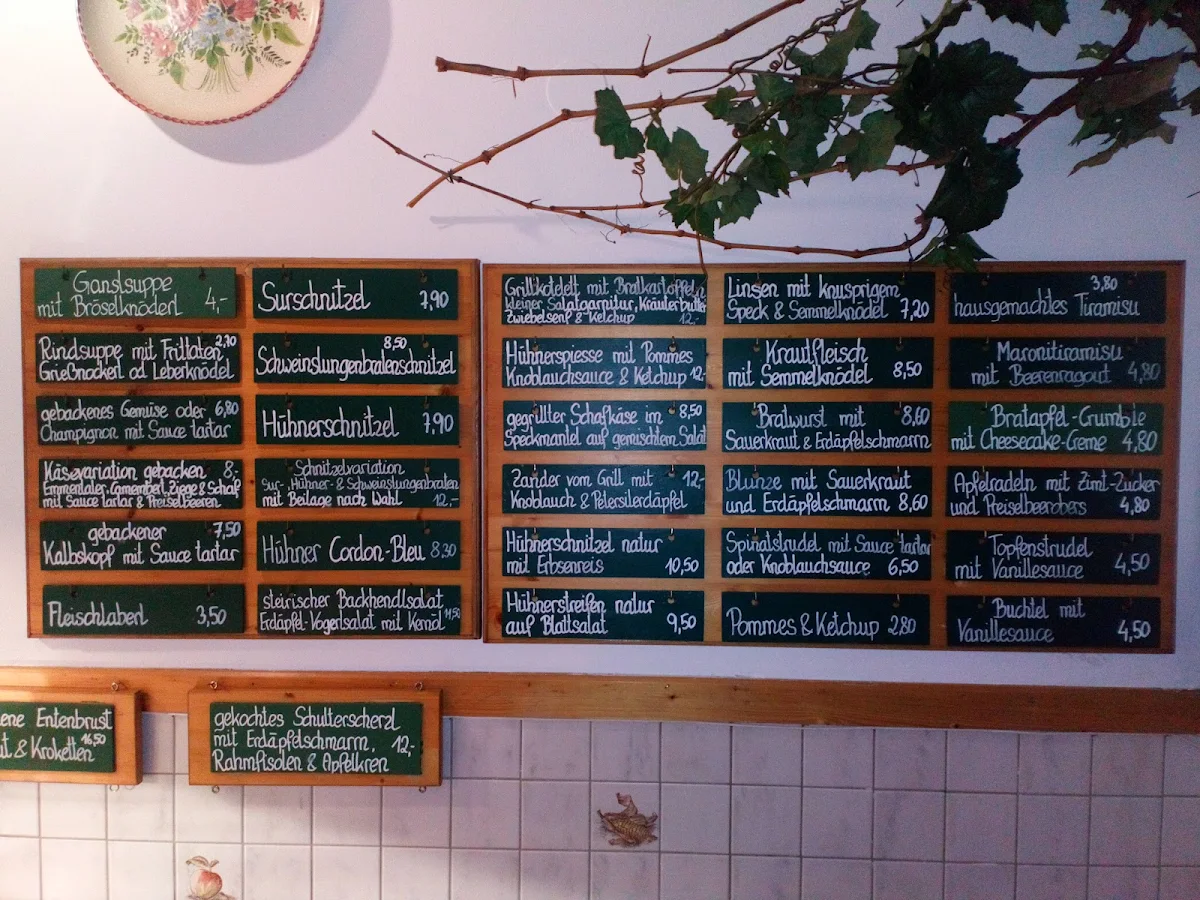 Ganslsuppe
mit Bröselknöderl 4,-
Rindsuppe mit Frittaten 2,90
Grießnockerl od Leberknödel
gebackenes Gemüse oder 6,80
Champignon mit Sauce tartar
Käsevariation gebacken 8,-
Emmentaler, Camembert, Ziege & Schaf
mit Sauce tartar & Preiselbeeren
gebackener 7,50
Kalbskopf mit Sauce tartar
Fleischlaberl 3,50
Surschnitzel 7,90
8,50
Schweinslungenbratenschnitzel
Hühnerschnitzel 7,90
Schnitzelvariation
Sur-, Hühner- & Schweinslungenbraten
mit Beilage nach Wahl 12,-
Hühner Cordon-Bleu 8,30
steirischer Backhendlsalat
Erdäpfel-Vogerlsalat mit Kernöl
Grillkotelett mit Bratkartoffeln
kleiner Salatgarnitur, Kräuterbutter
Zwiebelsenf & Ketchup 12,-
Hühnerspiesse mit Pommes
Knoblauchsauce & Ketchup 12,-
gegrillter Schafkäse im 8,50
Speckmantel auf gemischtem Salat
Zander vom Grill mit 12,-
Knoblauch & Petersilerdäpfel
Hühnerschnitzel natur
mit Erbsenreis 10,50
Hühnerstreifen natur
auf Blattsalat 9,50
Linsen mit knusprigem
Speck & Semmelknödel 7,20
Krautfleisch
mit Semmelknödel 8,50
Bratwurst mit 8,60
Sauerkraut & Erdäpfelschmarrn
Blunze mit Sauerkraut
und Erdäpfelschmarrn 8,60
Spinatstrudel mit Sauce tartar
oder Knoblauchsauce 6,50
Pommes & Ketchup 2,80
3,80
hausgemachtes Tiramisu
Maronitiramisu
mit Beerenragout 4,80
Bratapfel-Crumble
mit Cheesecake-Creme 4,80
Apfelradeln mit Zimt-Zucker
und Preiselbeerobers 4,80
Topfenstrudel
mit Vanillesauce 4,50
Buchtel mit
Vanillesauce 4,50
ene Entenbrust
t & Kroketten 16,50
gekochtes Schulterscherzl
mit Erdäpfelschmarrn, 12,-
Rahmfisolen & Apfelkren